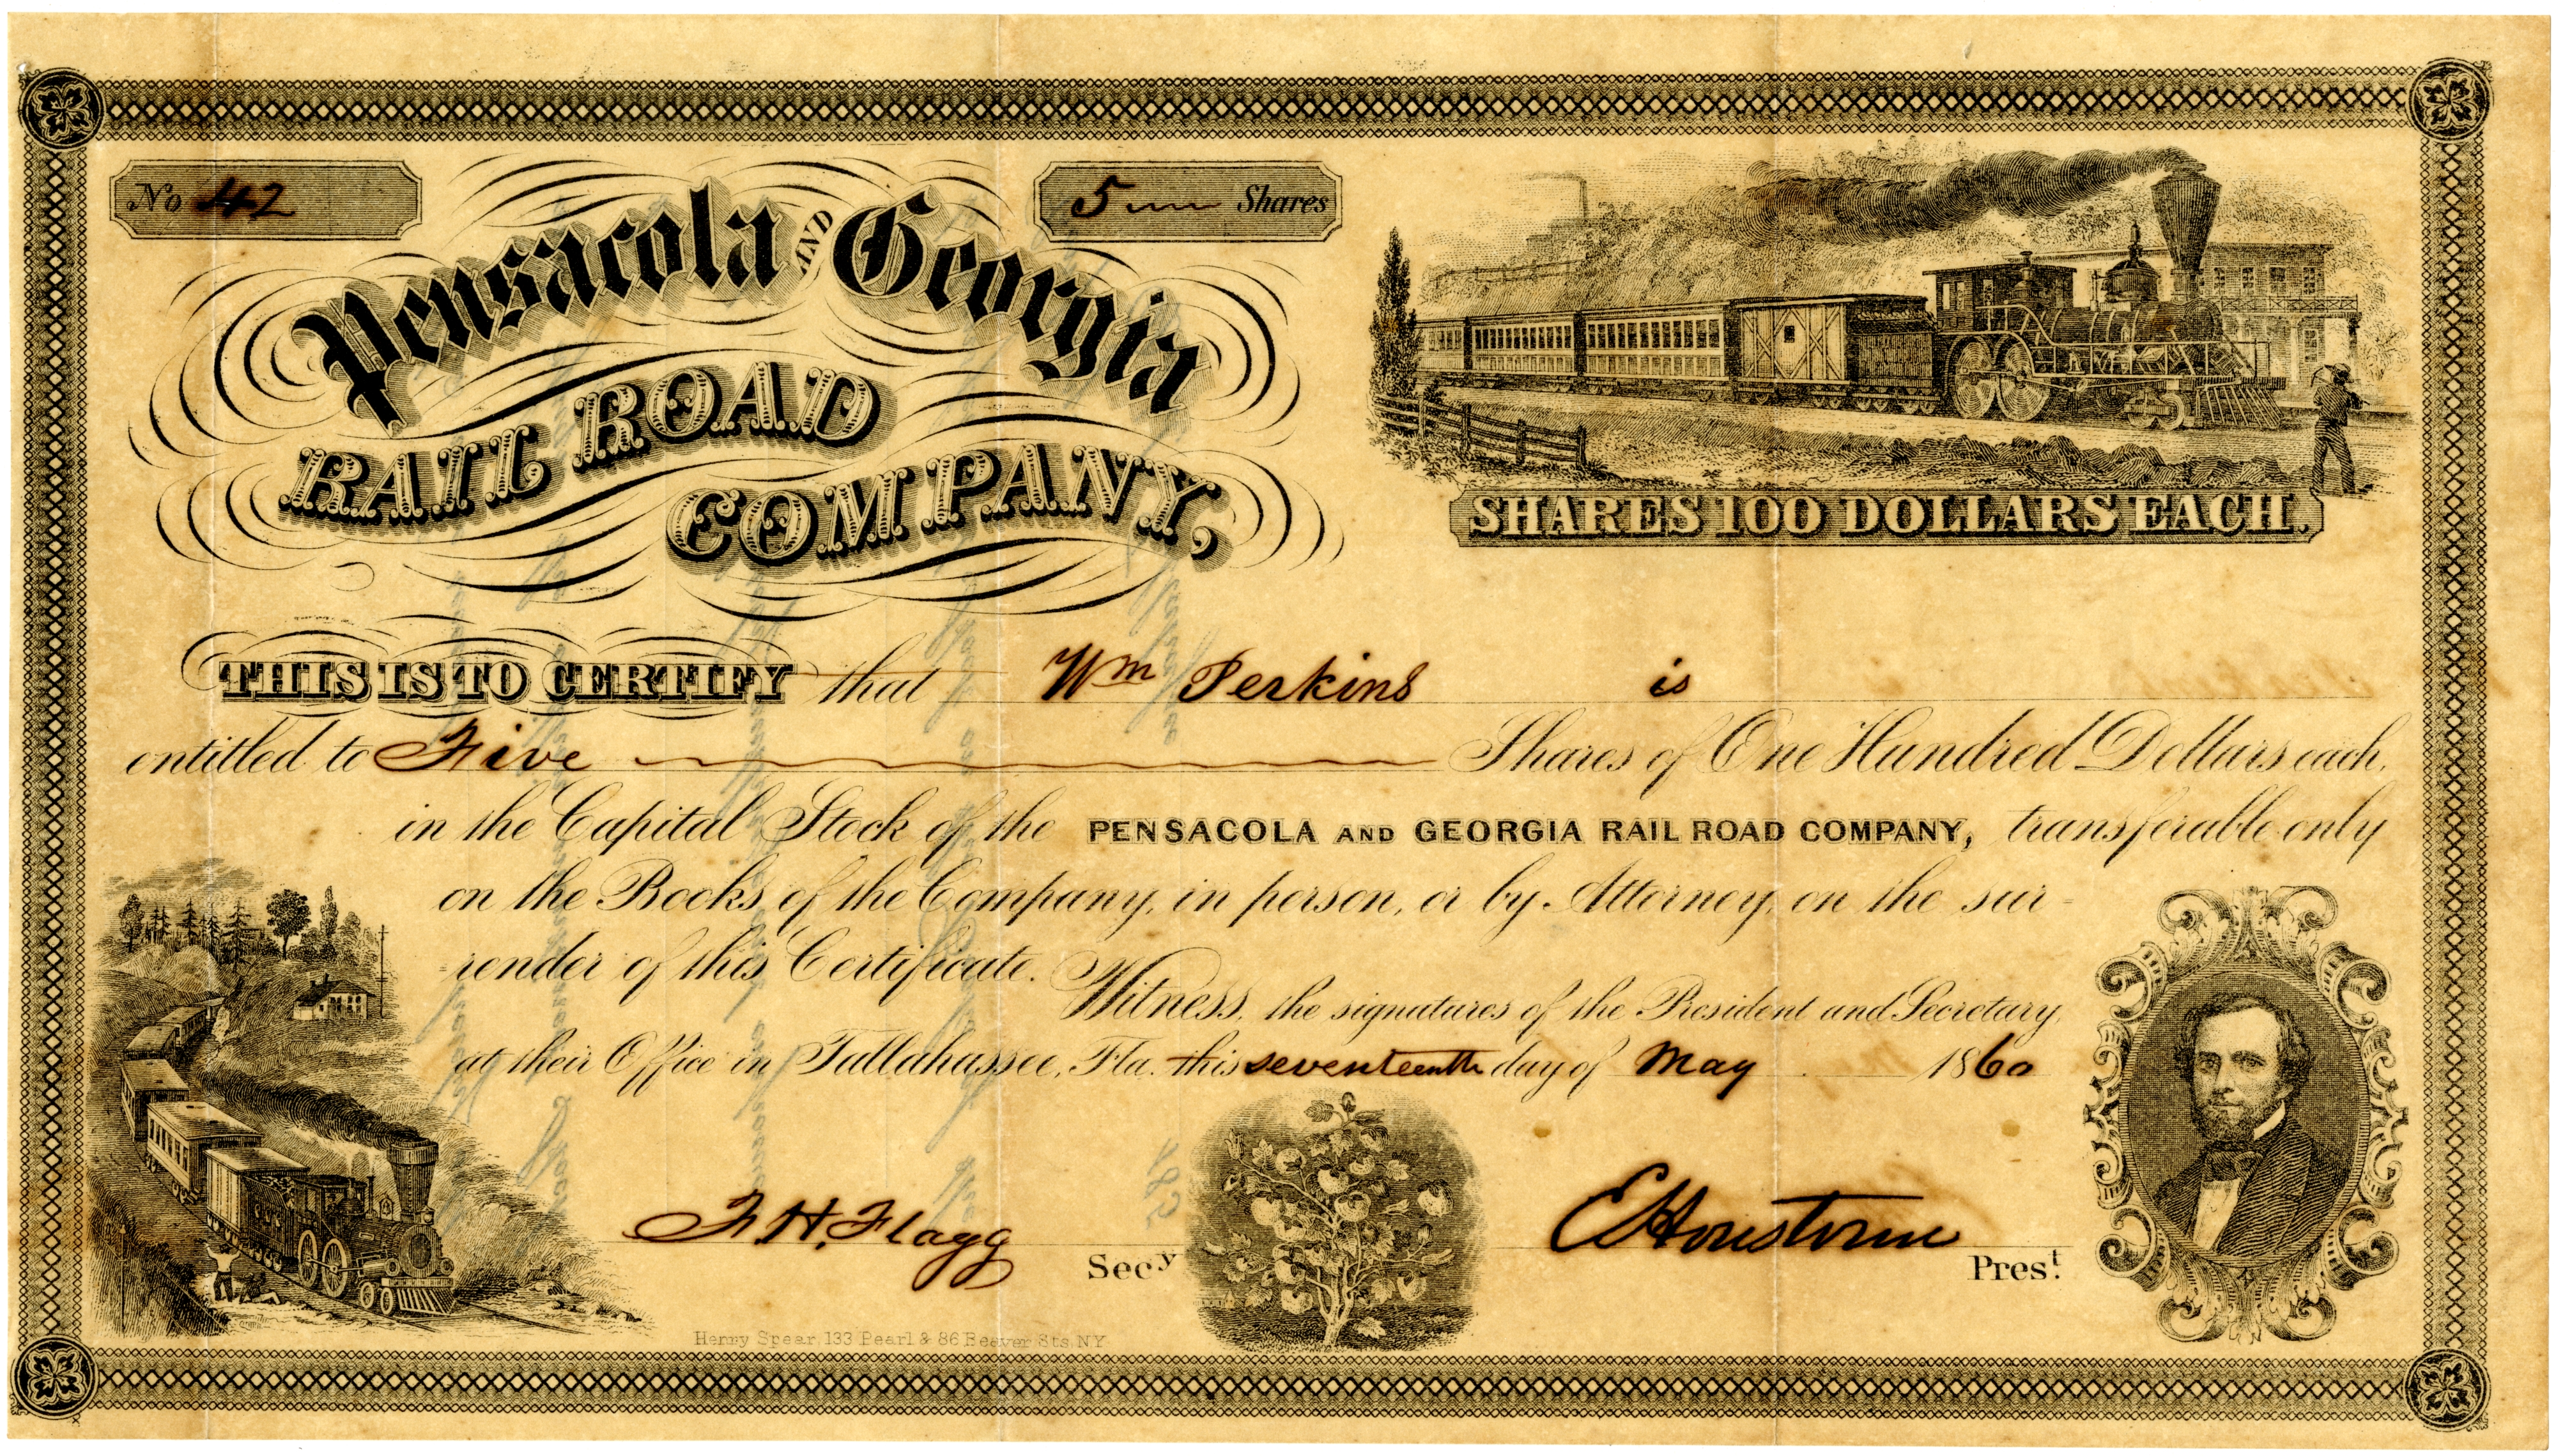 No 42
5 Shares
Pensacola AND Georgia
RAIL ROAD
COMPANY,
SHARES 100 DOLLARS EACH.
THIS IS TO CERTIFY that Wm Perkins is
entitled to Five Shares of One Hundred Dollars each,
in the Capital Stock of the PENSACOLA AND GEORGIA RAIL ROAD COMPANY, transferable only
on the Books of the Company, in person, or by Attorney, on the sur-
render of this Certificate. Witness, the signatures of the President and Secretary
at their Office in Tallahassee, Fla. this seventeenth day of May 1860
F. H. Flagg Secy
E Houstoun Prest.
Henry Spear, 133 Pearl & 86 Beaver Sts. NY